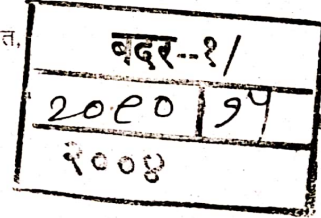 त,
बदर--१/
२०९० १५
२००४